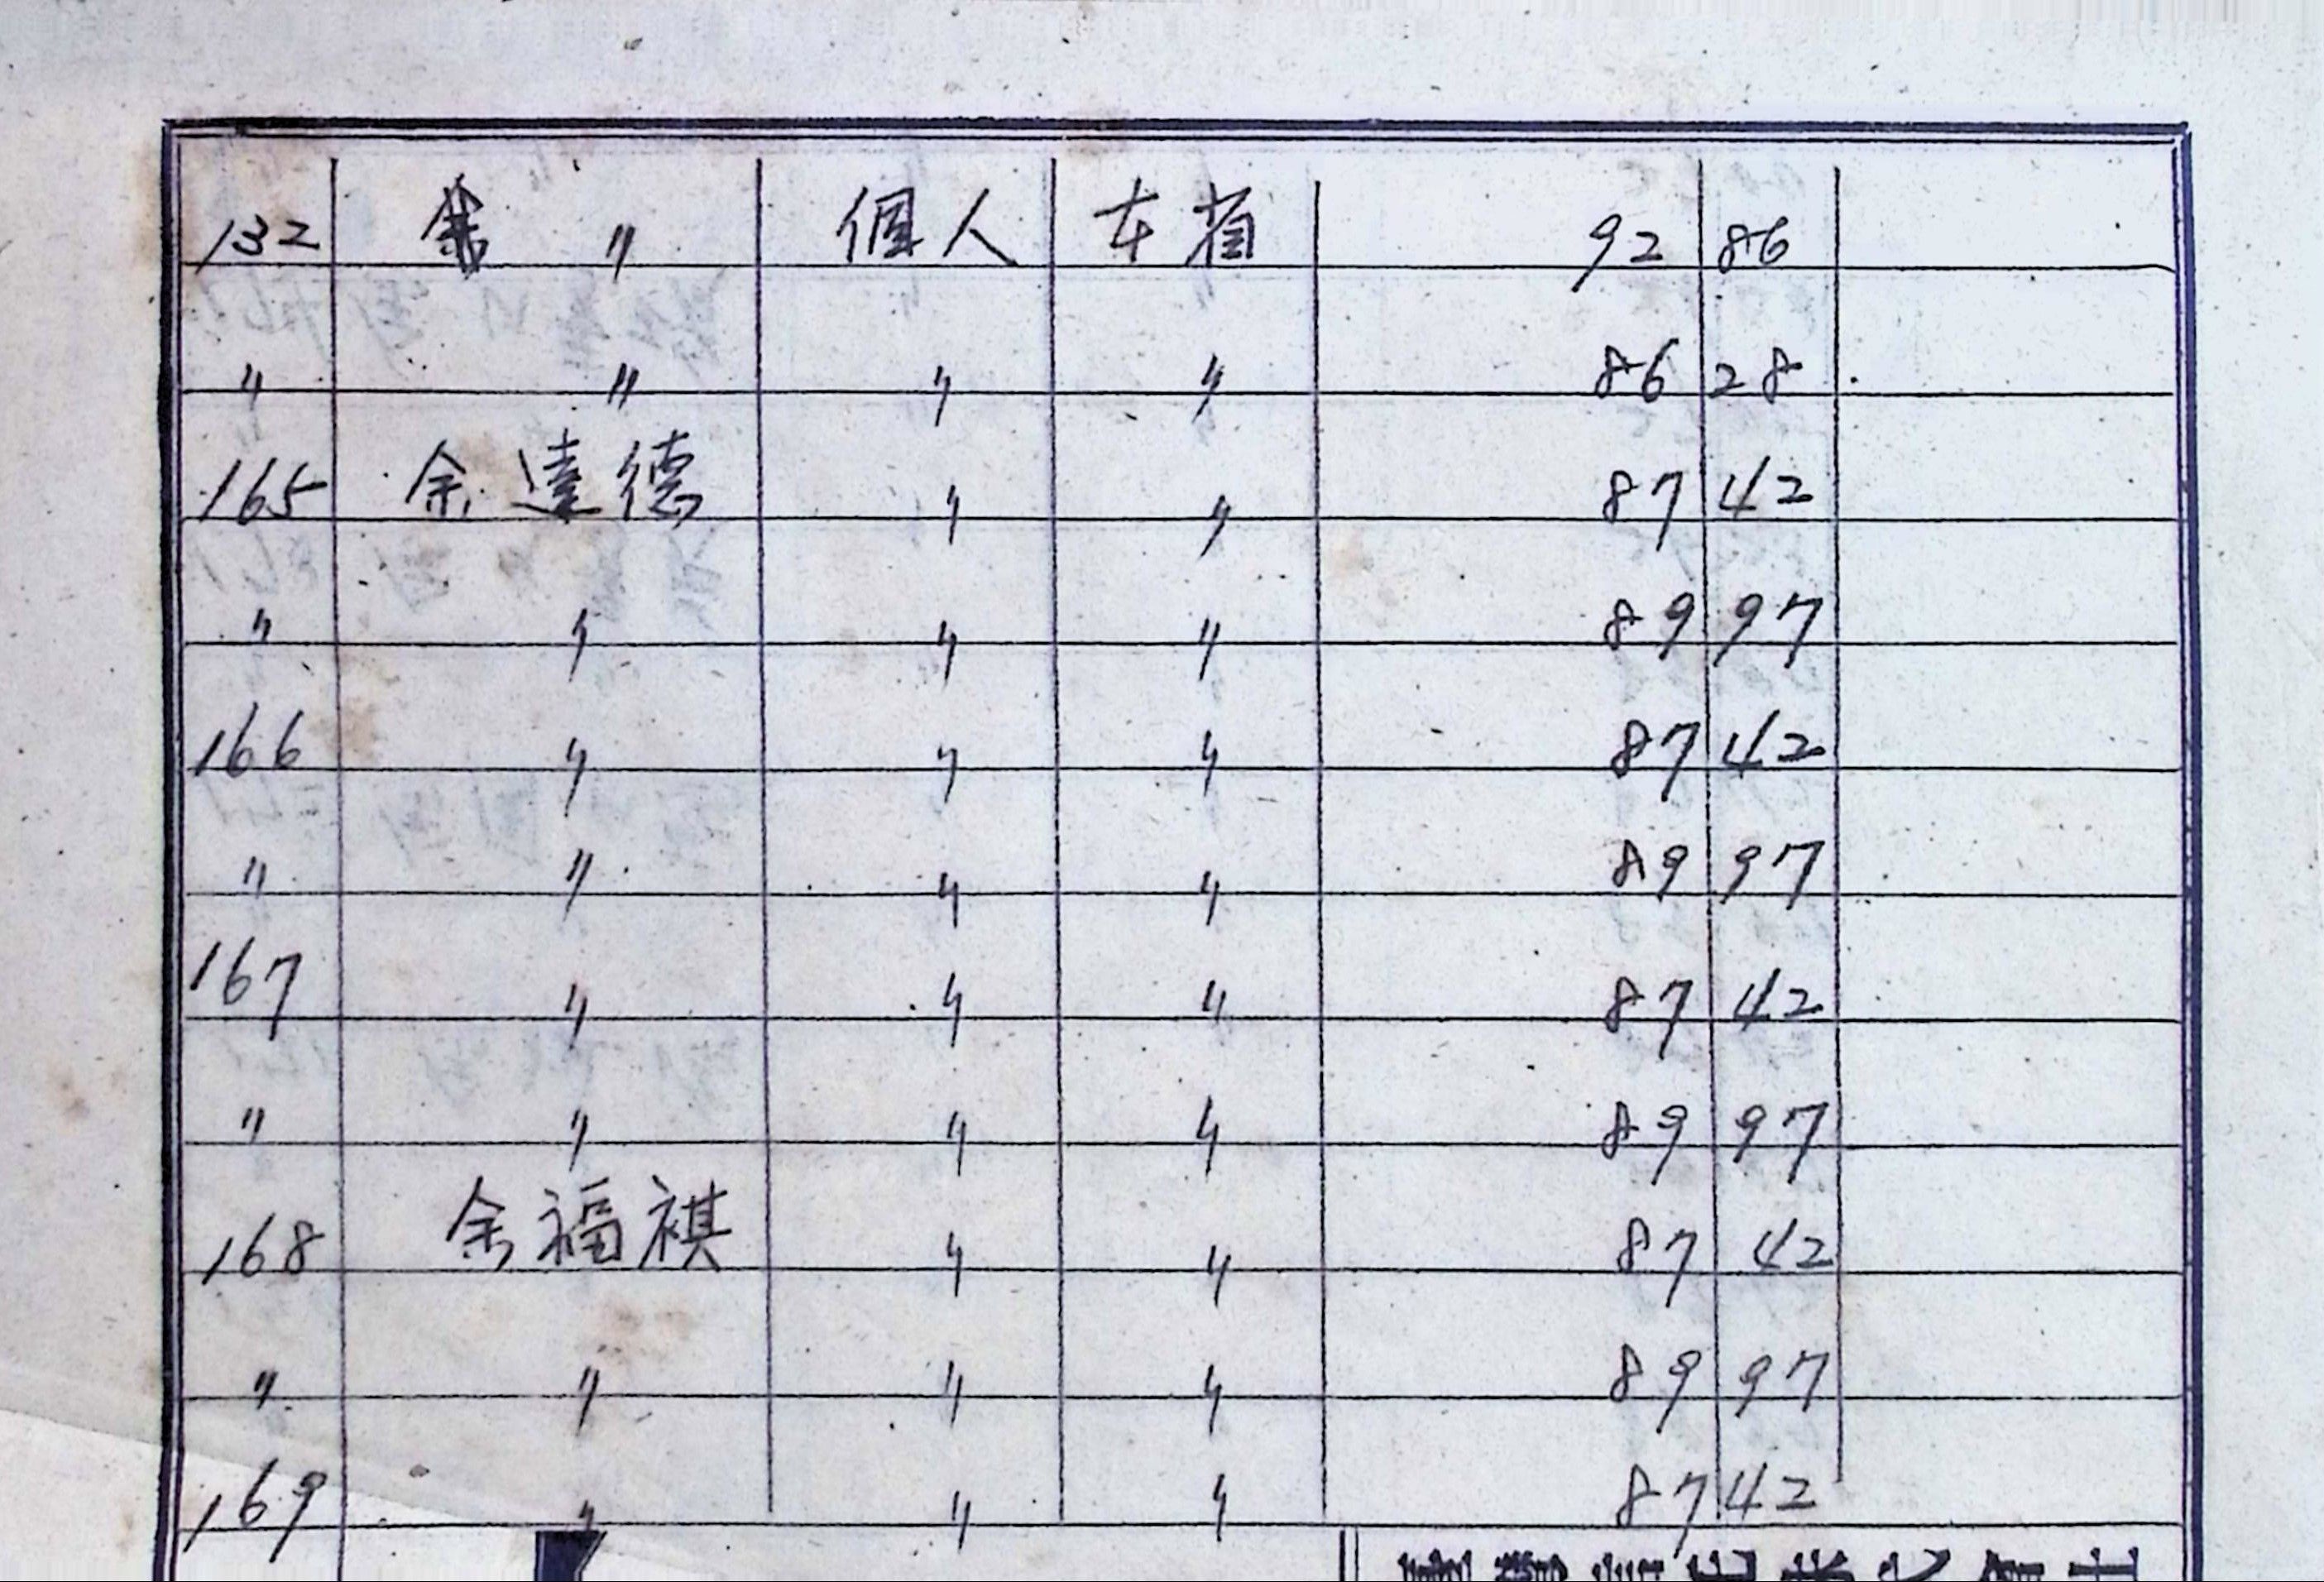 132 余 〃 個人 本省 92 86
〃 〃 〃 〃 86 28
165 余達德 〃 〃 87 42
〃 〃 〃 〃 89 97
166 〃 〃 〃 87 42
〃 〃 〃 〃 89 97
167 〃 〃 〃 87 42
〃 〃 〃 〃 89 97
168 余福祺 〃 〃 87 42
〃 〃 〃 〃 89 97
169 〃 〃 〃 87 42